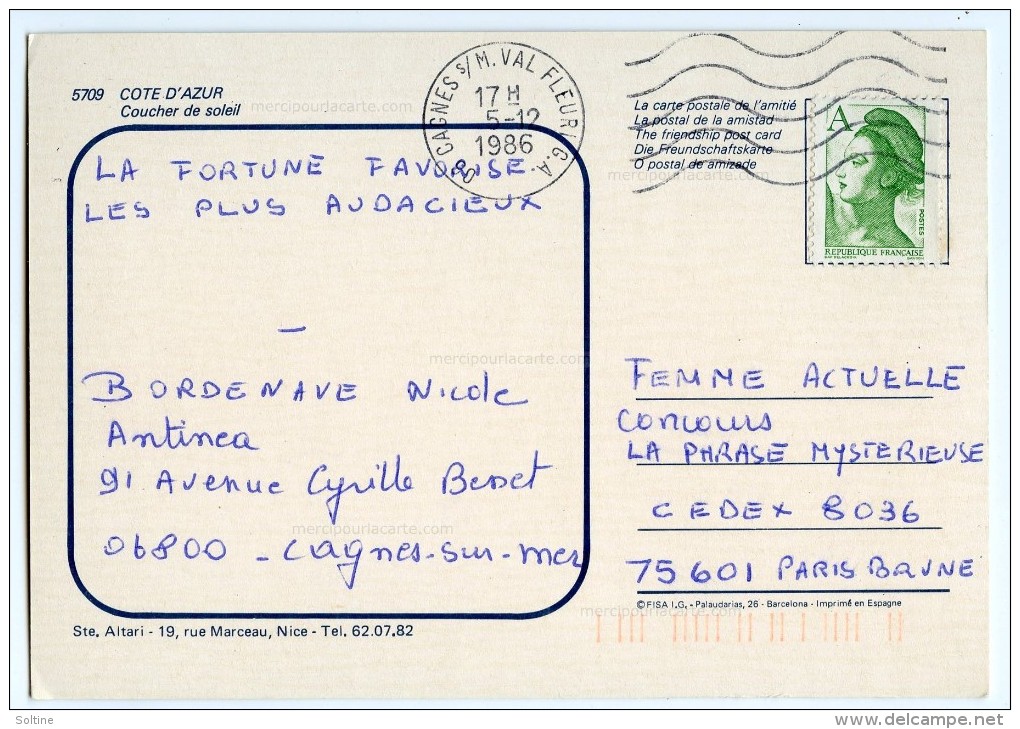 5709 COTE D'AZUR
Coucher de soleil
mercipourlacarte.com
CAGNES s/M. VAL FLEURI G.A. 06
17 H
5-12
1986
La carte postale de l'amitié
La postal de la amistad
The friendship post card
Die Freundschaftskarte
O postal de amizade
mercipourlacarte.com
A
POSTES
REPUBLIQUE FRANÇAISE
LA FORTUNE FAVORISE
LES PLUS AUDACIEUX
—
mercipourlacarte.com
BORDENAVE Nicole
Antinea
91 Avenue Cyrille Besset
mercipourlacarte.com
06800 - Cagnes-sur-mer
FEMME ACTUELLE
Concours
LA PHRASE MYSTERIEUSE
CEDEX 8036
75601 PARIS BRUNE
© FISA I.G. - Palaudarias, 26 - Barcelona - Imprimé en Espagne
mercipourlacarte.com
Ste. Altari - 19, rue Marceau, Nice - Tel. 62.07.82
Soltine
www.delcampe.net